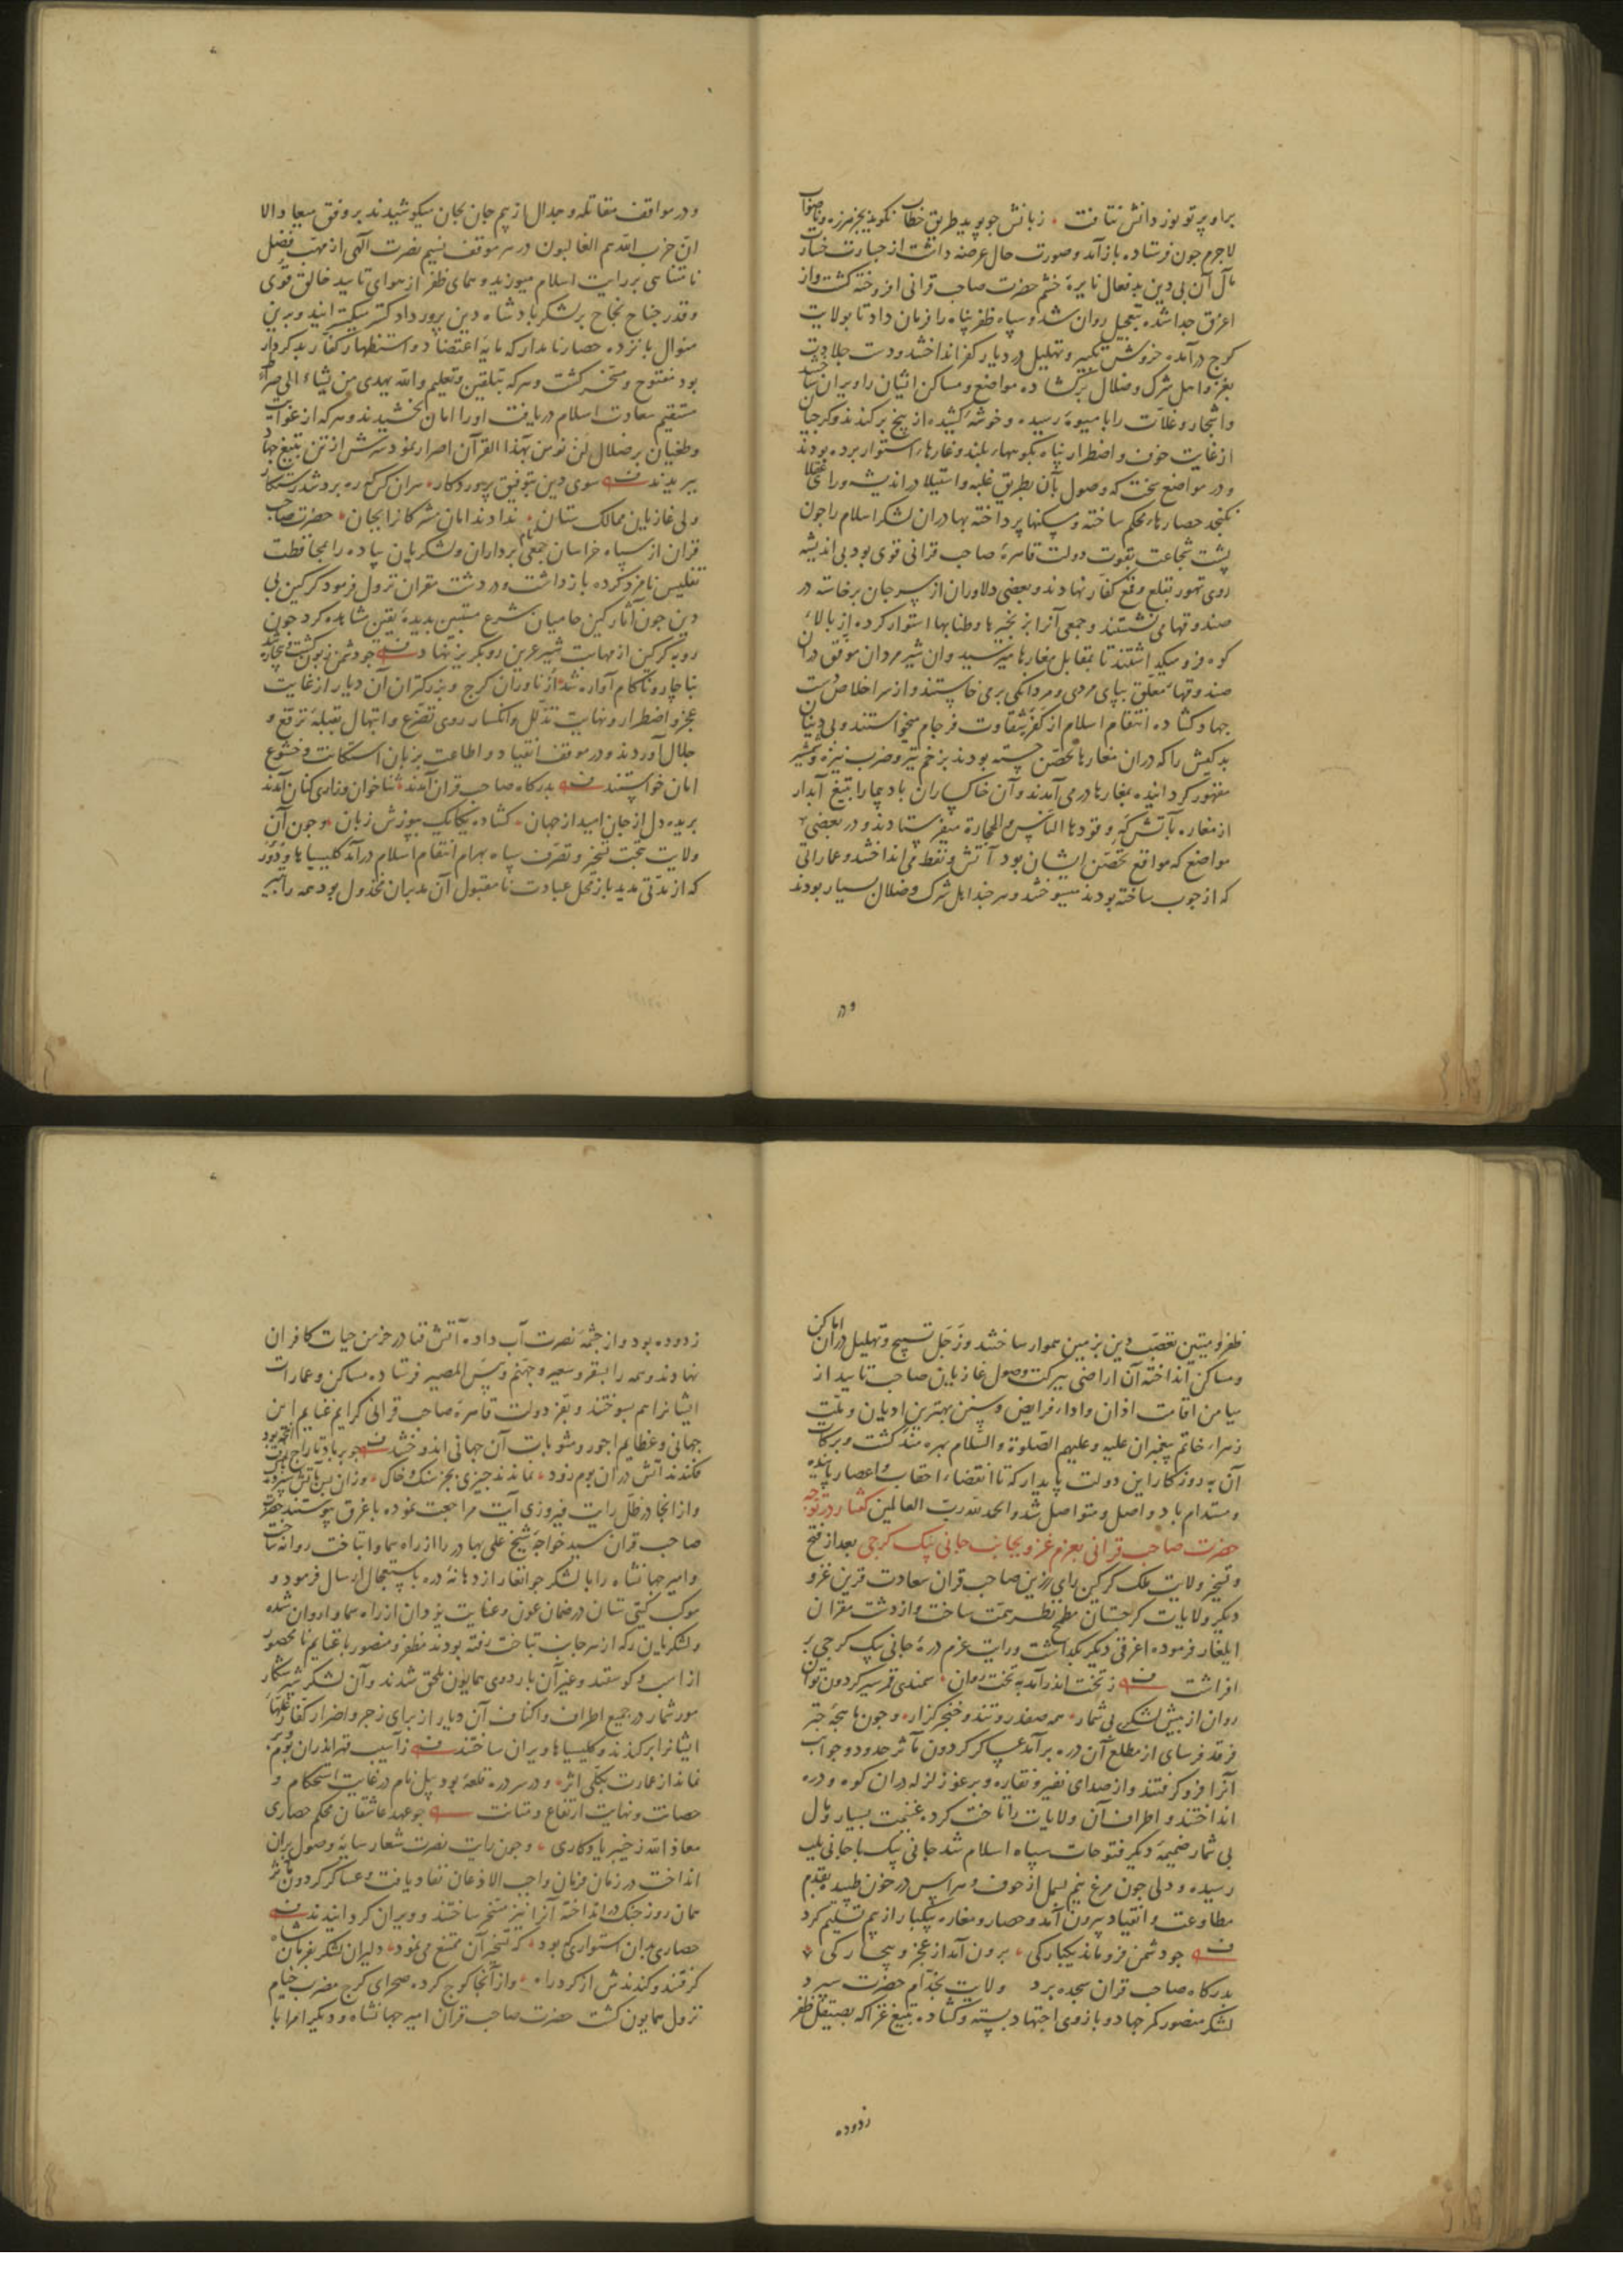 براو پرتو نور دانش نتافت زبانش جو پوید طریق خطاب نکوید بجز هرزه و ناصواب
لاجرم جون فرستاده بازآمد و صورت حال عرضه داشت از جسارت خسارت
مآل آن بی دین بدفعال نایرۀ خشم حضرت صاحب قرانی افروخته کشت و از
اغرق جدا شده بتعجیل روان شد و سپاه ظفر پناه را فرمان داد تا بولایت
کرج درآمده خروش تکبیر و تهلیل در دیار کفر انداختند و دست جلادت
بغزو اهل شرک و ضلال برکشاده مواضع و مساکن ایشان را ویران ساختند
و اشجار و غلات را با میوۀ رسیده و خوشۀ کشیده از بیخ برکندند و کرجیان
از غایت خوف و اضطرار پناه بکوههاء بلند و غارهاء استوار برده بودند
و در مواضع سخت که وصول بآن بطریق غلبه و استیلا در اندیشه و رای عقلا
نکنجد حصارهاء محکم ساخته و مسکنها پرداخته بهادران لشکر اسلام را جون
پشت شجاعت بقوت دولت قاهرۀ صاحب قرانی قوی بود بی اندیشه
روی تهور بقلع و قمع کفار نهادند و بعضی دلاوران از سر جان برخاسته در
صندوقها می نشستند و جمعی آنرا بزنجیرها و طنابها استوار کرده از بالاء
کوه فرو میکذاشتند تا بمقابل مغارها میرسید و آن شیرمردان موفق در آن
صندوقهاء معلق بپای مردی و مردانکی برمی خاستند و از سر اخلاص دست
جهاد کشاده انتقام اسلام از کفرۀ شقاوت فرجام میخواستند و بی دینان
بدکیش را که در آن مغارها تحصن جسته بودند بزخم تیر و ضرب نیزه و شمشیر
مقهور کردانیده بمغارها درمی آمدند و آن خاکساران بادپیما را بتیغ آبدار
از مغاره بآتش که وقودها الناس و الحجارة میفرستادند و در بعضی
مواضع که مواقع تحصن ایشان بود آتش و نفط می انداختند و عماراتی
که از جوب ساخته بودند میسوختند و هر جند اهل شرک و ضلال بسیار بودند
و در
و در مواقف مقاتله و جدال از بیم جان بجان میکوشیدند بر وفق میعاد الا
ان حزب الله هم الغالبون در هر موقف نسیم نصرت الهی از مهب فضل
نامتناهی بر رایت اسلام میوزید و همای ظفر از هوای تایید خالق قوی
و قدر جناح نجاح بر لشکر بادشاه دین پرور دادکستر میکسترانید و بدین
منوال بانزده حصار نامدار که مایۀ اعتضاد و استظهار کفار بدکردار
بود مفتوح و مسخر کشت و هر که بتلقین و تعلیم و الله یهدی من یشاء الی صراط
مستقیم سعادت اسلام دریافت او را امان بخشیدند و هر که از غوایت
و طغیان بر ضلال لن نومن بهذا القرآن اصرار نمود سرش از تن بتیغ جهاد
ببریدند سوی دین بتوفیق پروردکار هر آن کس که ره برد شد رستکار
ولی غازیان ممالک ستان ندادند امان مشرکانرا بجان حضرت صاحب
قران از سپاه خراسان جمعی سپام برداران و لشکریان پیاده را بمحافظت
تفلیس نامزد کرده بازداشت و در دشت مقران نزول فرمود کرکین بی
دین جون آثار کین حامیان شرع متین بدیدۀ یقین مشاهده کرد جون
روبه کرکین از مهابت شیر عرین رو بکریز نهاد جو دشمن زبون کشت و بیچاره شد
بناچار و ناکام آواره شد ازناوران کرج و بزرکتران آن دیار از غایت
عجز و اضطرار و نهایت تذلل و انکسار روی تضرع و ابتهال بقبلۀ ترفع و
جلال آوردند و در موقف انقیاد و اطاعت بزبان استکانت و خشوع
امان خواستند بدرکاه صاحب قران آمدند ثناخوان و زاری کنان آمدند
بریده دل از جان امید از جهان کشاده یکایک بپوزش زبان و جون آن
ولایت تحت تسخیر و تصرف سپاه بهرام انتقام اسلام درآمد کلیسیاها و دور
که از مدتی مدید باز محل عبادت نامقبول آن مدبران مخذول بود همه را بتبر
ظفر و میتین تعصب دین بزمین هموار ساختند و زجل تسبیح و تهلیل در آن اماکن
و مساکن انداخته آن اراضی ببرکت وصول غازیان صاحب تایید از
میامن اقامت اذان و اداء فرایض و سنن بهترین ادیان و ملت
زهراء خاتم پیغمبران علیه و علیهم الصلوة والسلام بهره مند کشت و برکات
آن بروزکار این دولت پایدار که تا انقضاء احقاب و اعصار پاینده
و مستدام باد واصل و متواصل شد و الحمد لله رب العالمین کفتار در توجه
حضرت صاحب قرانی بعزم غزو بجانب جانی بیک کرجی بعد از فتح
و تسخیر ولایت ملک کرکین رای رزین صاحب قران سعادت قرین غزو
دیکر ولایات کرجستان مطمح نظر همت ساخت و از دشت مقران
ایلغار فرموده اغرقی دیکر بکذاشت و رایت عزم درۀ جانی بیک کرجی بر
افراشت ز تخت اندر آمد به تخت روان سمندی قمر سیر کردون توان
روان از پیش لشکری بی شمار همه صفدر و تند و خنجرکزار و جون ماهجۀ جتر
فرقدفرسای از مطلع آن دره برآمد عساکر کردون مآثر حدود و جوانب
آنرا فروکرفتند و از صدای نفیر و نقاره و برغو زلزله در آن کوه و دره
انداختند و اطراف آن ولایات را تاخت کرده غنیمت بسیار و مال
بی شمار ضمیمۀ دیکر فتوحات سپاه اسلام شد جانی بیک با جانی بلب
رسیده و دلی جون مرغ نیم بسمل از خوف و هراس در خون طپیده بقدم
مطاوعت و انقیاد بیرون آمد و حصار و مغاره بیکبار از بیم تسلیم کرد
جو دشمن فرو ماند یکبارکی برون آمد از عجز و بیچارکی
بدرکاه صاحب قران سجده برد ولایت بخدام حضرت سپرد
لشکر منصور کمر جهاد و بازوی اجتهاد بسته و کشاده بتیغ غزا که بصیقل ظفر
زدوده
زدوده بود و از جشمۀ نصرت آب داده آتش فنا در خرمن حیات کافران
نهادند و همه را بسقر و سعیر و جهنم و بئس المصیر فرستاده مساکن و عمارات
ایشانرا هم بسوختند و بفر دولت قاهرۀ صاحب قرانی کرایم غنایم این
جهانی و عظایم اجور و مثوبات آن جهانی اندوختند جو بر باد تاراج رفت آنچه بود
فکندند آتش در آن بوم زود نماندند جیزی بجز سنک و خاک وزان پس بآتش سپردند پاک
و از آنجا در ظل رایت فیروزی آیت مراجعت نموده باغرق پیوستند حضرت
صاحب قران سید خواجه شیخ علی بهادر را از راه سماوا بتاخت روانه ساخت
و امیر جهانشاه را با لشکر جوانغار از دهانۀ دره باستعجال ارسال فرمود و
موکب کیتی ستان در ضمان عون و عنایت یزدان از راه سماوا روان شده
و لشکریان که از هر جانب بتاخت رفته بودند مظفر و منصور با غنایم نامحصور
از اسب و کوسفند و غیر آن باردوی همایون ملحق شدند و آن لشکر شیر شکار
مور شمار در جمیع اطراف و اکناف آن دیار از برای زجر و اضرار کفار غلهاء
ایشانرا برکندند و کلیسیاها ویران ساختند ز آسیب قهر اندران بوم و بر
نماند از عمارت بکلی اثر و در سر دره قلعۀ بود بیل نام در غایت استحکام و
حصانت و نهایت ارتفاع و متانت جو عهد عاشقان محکم حصاری
معاذ الله ز خیبر یادکاری و جون رایت نصرت شعار سایۀ وصول بر آن
انداخت در زمان فرمان واجب الاذعان نفاذ یافت و عساکر کردون مآثر
همان روز جنک درانداخته آنرا نیز مسخر ساختند و ویران کردانیدند
حصاری بدان استواری که بود که تسخیر آن ممتنع می نمود دلیران لشکر بفرمان شاه
کرفتند و کندندش از کرد راه و از آنجا کوج کرده صحرای کرج مضرب خیام
نزول همایون کشت حضرت صاحب قران امیر جهانشاه و دیکر امرا با